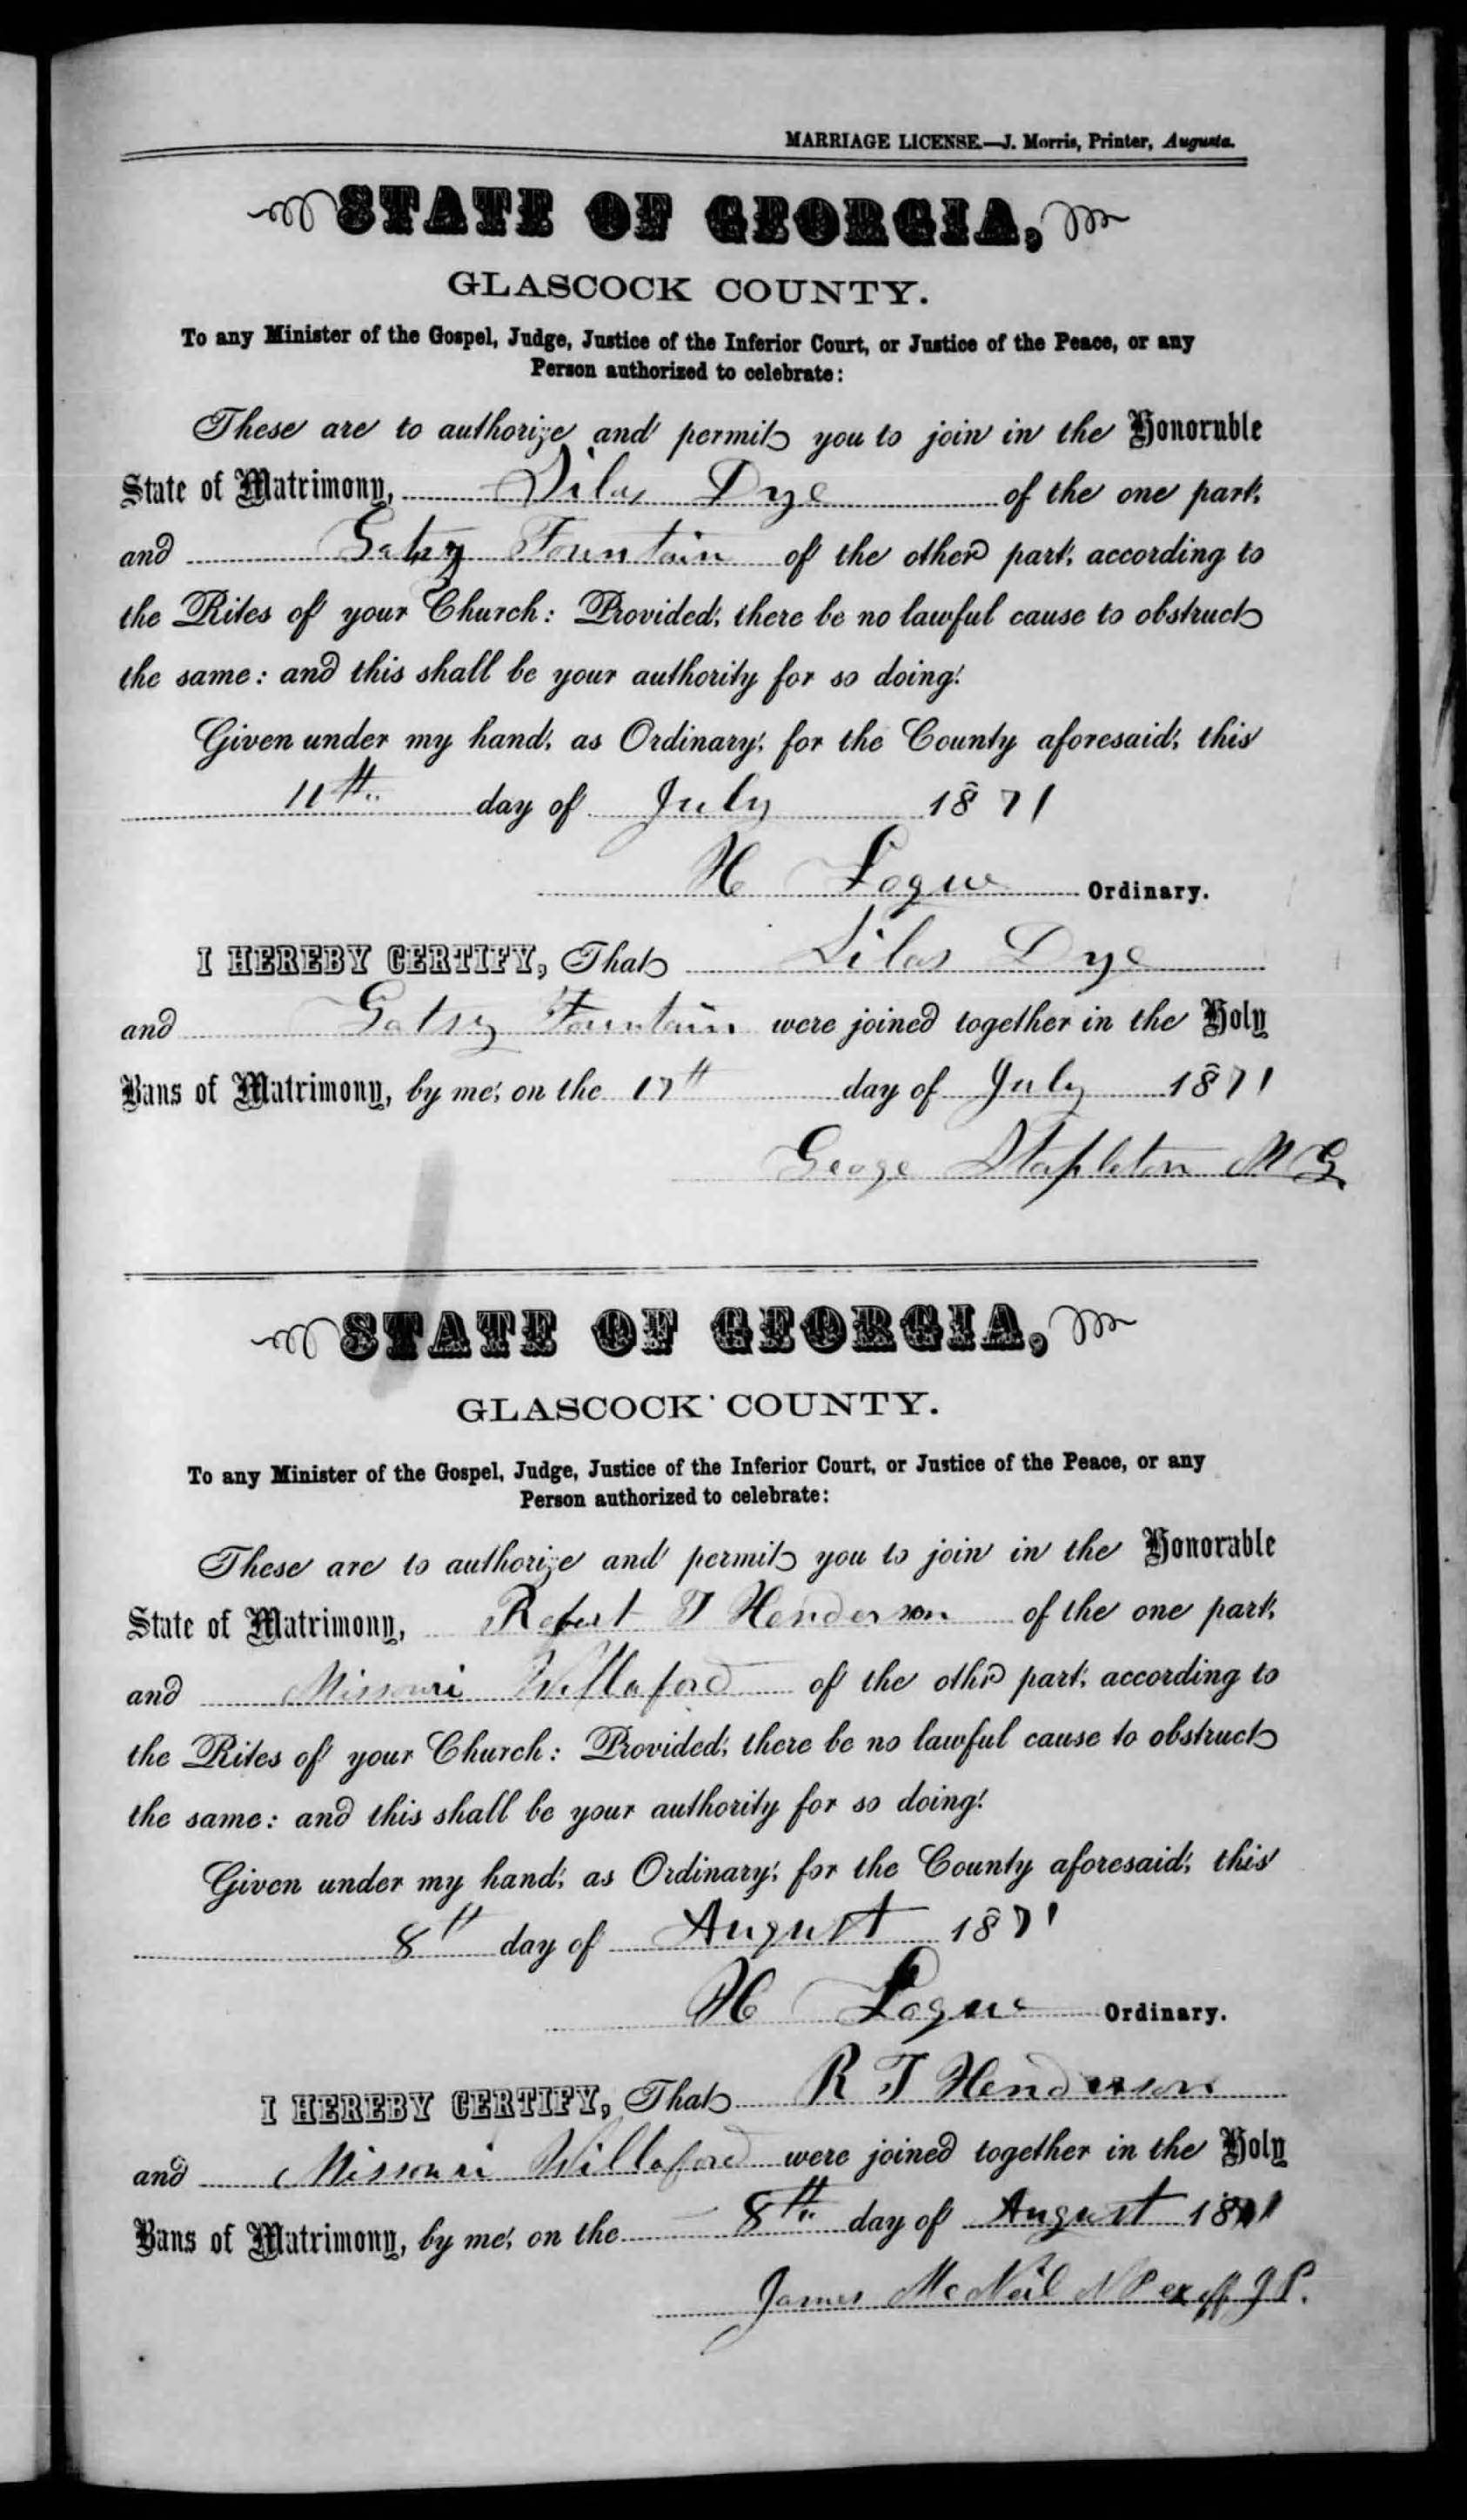 MARRIAGE LICENSE.—J. Morris, Printer, Augusta.
STATE OF GEORGIA,
GLASCOCK COUNTY.
To any Minister of the Gospel, Judge, Justice of the Inferior Court, or Justice of the Peace, or any
Person authorized to celebrate:
These are to authorize and permit you to join in the Honorable
State of Matrimony, Silas Dye of the one part,
and Gatsy Fountain of the other part, according to
the Rites of your Church: Provided, there be no lawful cause to obstruct
the same: and this shall be your authority for so doing.
Given under my hand, as Ordinary, for the County aforesaid, this
11th day of July 1871
H Logue Ordinary.
I HEREBY CERTIFY, That Silas Dye
and Gatsy Fountain were joined together in the Holy
Bans of Matrimony, by me, on the 17th day of July 1871
Geoge Stapleton M G
STATE OF GEORGIA,
GLASCOCK COUNTY.
To any Minister of the Gospel, Judge, Justice of the Inferior Court, or Justice of the Peace, or any
Person authorized to celebrate:
These are to authorize and permit you to join in the Honorable
State of Matrimony, Robert T Henderson of the one part,
and Missouri Willaford of the othr part, according to
the Rites of your Church: Provided, there be no lawful cause to obstruct
the same: and this shall be your authority for so doing.
Given under my hand, as Ordinary, for the County aforesaid, this
8th day of August 1871
H Logue Ordinary.
I HEREBY CERTIFY, That R T Henderson
and Missouri Willaford were joined together in the Holy
Bans of Matrimony, by me, on the 8th day of August 1871
James McNeil N P ex off J P.